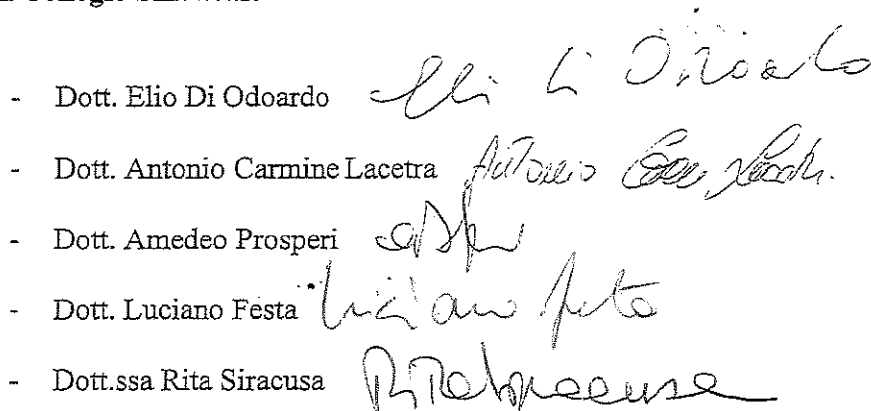 Collegio
- Dott. Elio Di Odoardo Elio Di Odoardo
- Dott. Antonio Carmine Lacetra Antonio
- Dott. Amedeo Prosperi
- Dott. Luciano Festa Luciano Festa
- Dott.ssa Rita Siracusa Rita Siracusa